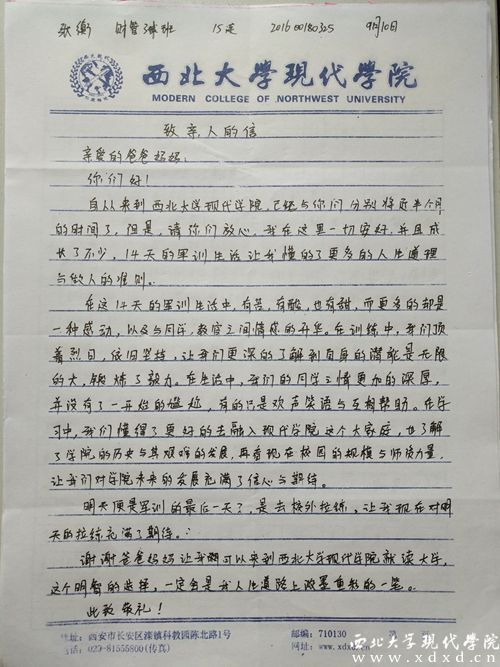 张衡 财管3班 15连 201600180325 9月10日
西北大學現代學院
MODERN COLLEGE OF NORTHWEST UNIVERSITY
致亲人的信
亲爱的爸爸妈妈:
你们好!
自从来到西北大学现代学院,已经与你们分别将近半个月
的时间了,但是,请你们放心,我在这里一切安好,并且成
长了不少,14天的军训生活让我懂的了更多的人生道理
与做人的准则。
在这14天的军训生活中,有苦,有酸,也有甜,而更多的却是
一种感动,以及与同学,教官之间情感的升华。在训练中,我们顶
着烈日,依旧坚持,让我们更深的了解到自身的潜能是无限
的大,锻炼了毅力。在生活中,我们的同学之情更加的深厚,
并没有了一开始的尴尬,有的只是欢声笑语与互相帮助。在学
习中,我们懂得了更好的去融入现代学院这个大家庭,也了解
了学院的历史与其艰难的发展,再看现在校园的规模与师资力量,
让我们对学院未来的发展充满了信心与期待。
明天便是军训的最后一天了,是去校外拉练,让我现在对明
天的拉练充满了期待。
谢谢爸爸妈妈让我可以来到西北大学现代学院就读大学,
这个明智的选择,一定会是我人生道路上浓墨重彩的一笔。
此致敬礼!
地址:西安市长安区滦镇科教园陈北路1号 邮编:710130
电话:029-81555800(传真) www.xdxd.cn
西北大学现代学院
www.xdxd.cn